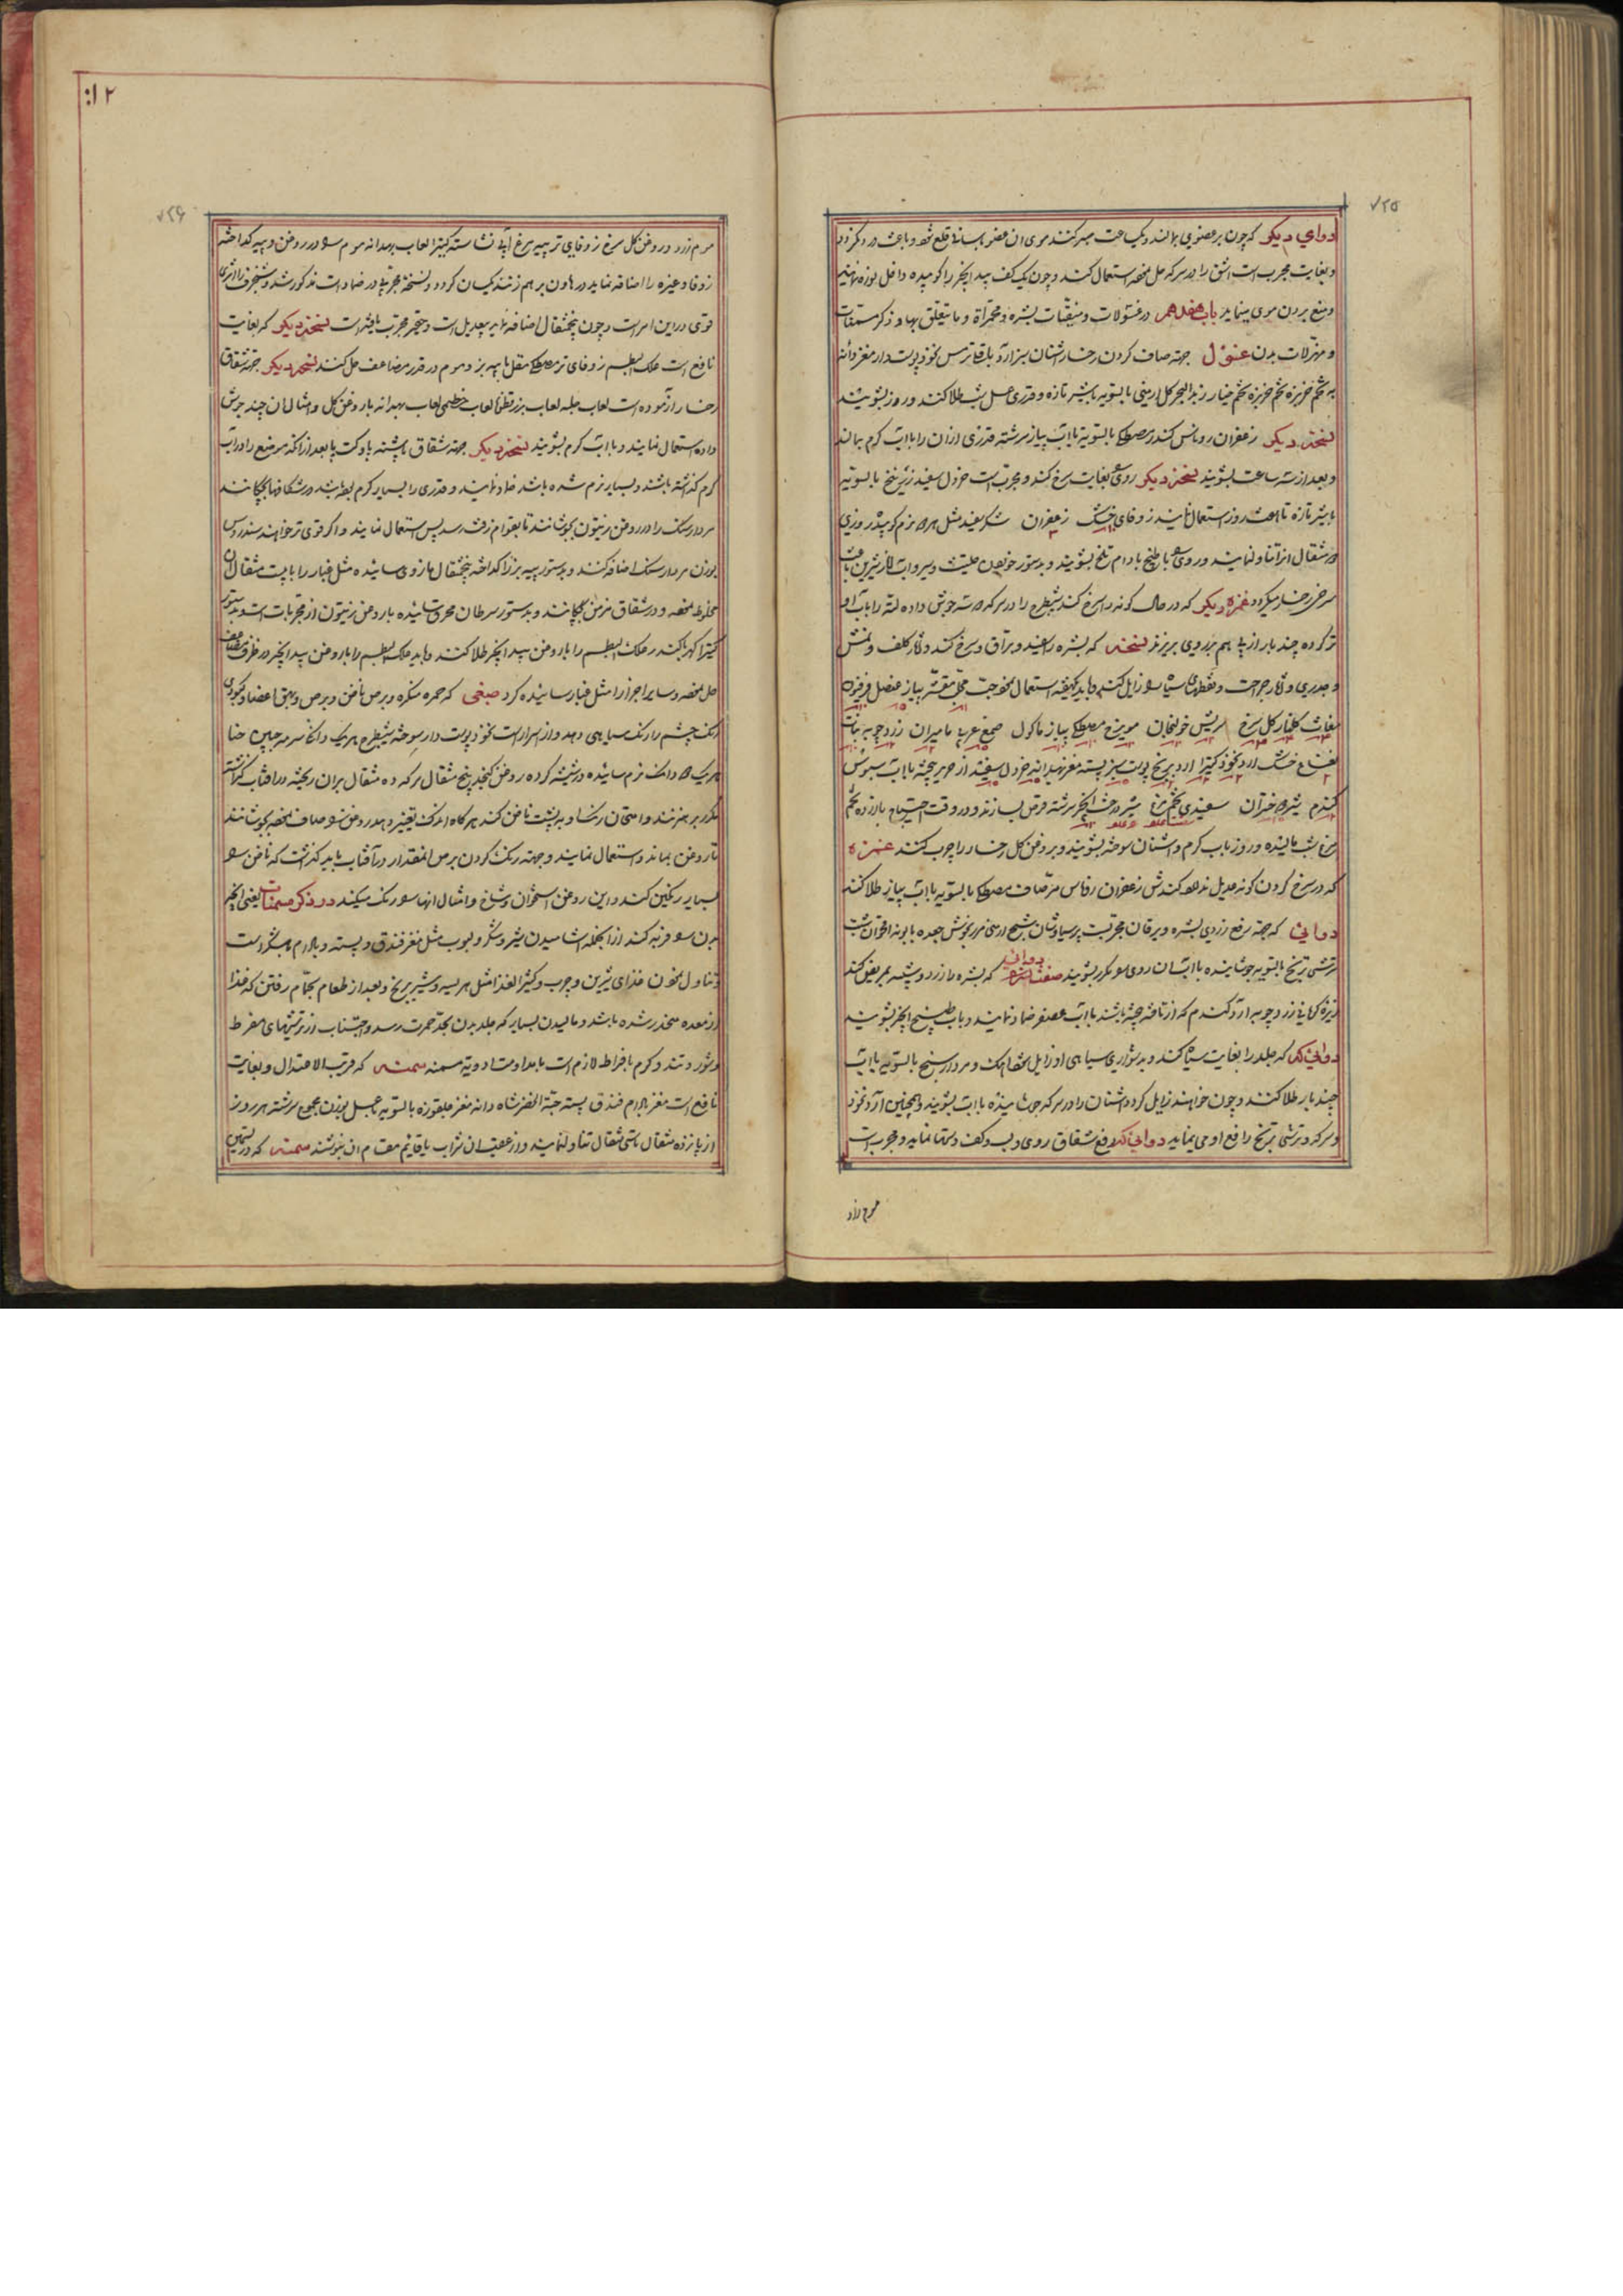 ٧٢٥
دوای دیکر که چون بر عضوی بمالند ویکساعت صبر کنند موی ان عضو باسانی قلع شود و باعث درد نکردد
و بغایت مجربست اشق را در سرکه حل نموده استعمال کنند و چون یک کف بیدانجیر را کوبیده داخل نوره نمایند
و منع بردن موی مینماید باب هفدهم در غسولات و منقیات بشره و محمراة و ما یتعلق بها و ذکر مسمنات
و مهزلات بدن غسول جهة صاف کردن رخسار اشنان سبز آرد باقلا ترمس نخود پوست دار مغز دانه
به تخم خربزه تخم خیار زبد البحر کل ارمنی بالسویه باشیر تازه و قدری عسل شب طلا کنند و روز بشویند
نسخه دیکر زعفران روناس کندر مصطکی بالسویه باآب پیاز سرشته قدری ازان را باآب کرم بمالند
و بعد از سه ساعت بشویند نسخه دیکر روی بغایت سرخ کند و مجربست خردل سفید زرنیخ بالسویه
باشیر تازه تا هشت روز استعمال نمایند زوفای خشک زعفران شکر سفید مثل همه نرم کوبیده روزی
مثقال ازان تناول نمایند و روی با طبیخ بادام تلخ بشویند و بدستور خوردن حلتیت و سیر و آب انار شیرین باعث
سرخی رخسار میکردد غمزه دیکر که در حال کونه را سرخ کند شیطرج را در سرکه سه جوش داده لته را باآب او
تر کرده چند بار از پی هم بر روی بریزند نسخه که بشره را سفید و براق و سرخ کند و آثار کلف و نمش
و جدری و آثار جراحت و نقطهای سیاه زایل کند و باید یکهفته استعمال نمود حب محلب مقشر پیاز عنصل
مغاث کلنار کل سرخ سریش خولنجان مویزج مصطکی پیاز ماکول صمغ عربی مامیران زردچوبه نبات
نعناع خشک ارد نخود کتیرا ارد برنج پوست سبز پسته مغز بهدانه خردل سفید از حریر بیخته باآب سبوس
کندم شیره خرآن سفیدی تخم مرغ شیر درخت انجیر سرشته قرص بسازند و در وقت احتیاج بازرده تخم
مرغ شب مالیده و روز باب کرم و اشنان سوخته بشویند و بروغن کل رخسار را چرب کنند غمزه
که در سرخ کردن کونه عدیل ندارد کندش زعفران روناس مر صاف مصطکی بالسویه باآب پیاز طلا کنند
دوائی که جهة رفع زردی بشره و یرقان مجربست پرسیاوشان شیح ارمنی مرزنجوش جعده بابونه اقحوان شبت
ترشی ترنج بالسویه جوشانیده باآب ان روی مکرر بشویند دوائی که بشره را زرد و شبیه بمریض کند
زیره کرمانی زردچوبه آرد کندم که از تافته بیخته باشند باآب عصفر ضماد نمایند و باب طبیخ انجیر بشویند
دوائی که جلد را بغایت سیاه کند و بدشواری سیاهی او زایل شود اهک و مردارسنج بالسویه باآب
چند بار طلا کنند و چون خواهند زایل کردد اشنان را در سرکه جوشانیده باآب بشویند و همچنین آرد نخود
و سرکه و ترشی ترنج رافع او می نماید دوائی که رفع شقاق روی و لب و کف دستها نماید و مجربست
موم زرد
١٢
٧٢٦
موم زرد و روغن کل سرخ زوفای تر پیه مرغ آبی نشاسته کتیرا لعاب بهدانه موم در روغن و پیه کداخته
زوفا و غیره را اضافه نماید در هاون بر هم زنند تا یکسان کردد و نسخه مجرب در ضمادات مذکور شد و شنجرف را اثری
قوی در این امر است و چون پنجمثقال اضافه نمایند بیعدیل است و حقیر مجرب یافته است نسخه دیکر که بغایت
نافع است علک البطم زوفای تر مصطکی مقل باپیه بز و موم در قدر مضاعف حل کنند نسخه دیکر جهة شقاق
رخسار آزموده است لعاب حلبه لعاب بزرقطونا لعاب خطمی لعاب بهدانه با روغن کل و امثال ان چند جوش
داده استعمال نمایند و باآب کرم بشویند نسخه دیکر جهة شقاق پاشنه پا و کف پا بعد از انکه سر موضع را در آب
کرم کذاشته باشند و بسیار نرم شده باشد ضماد نمایند و قدری را بسیار کرم در شکافها بچکانند
مردارسنک را در روغن زیتون بجوشانند تا بقوام زفت رسد پس استعمال نمایند و اکر قوی تر خواهند سندروس
بوزن مردارسنک اضافه کنند و بدستور پیه بز را کداخته پنجمثقال مازوی سائیده مثل غبار را با بیست مثقال ان
مخلوط نموده در شقاق مزمن بچکانند و بدستور سرطان محرق سائیده با روغن زیتون از مجربات است و بدستور
کتیرا کهربا کندر علک البطم را با روغن بیدانجیر طلا کنند و باید علک البطم را با روغن بیدانجیر در ظرف مضاعف
حل نموده و سایر اجزا را مثل غبار سائیده کرد صبغی که حمره منکره و برص ناخن و برص و بهق اعضا و کبودی
رنک چشم را رنک سیاهی دهد و از اسرار است نخود پوست دار سوخته شیطرج هریک دانک سرمه چاین حنا
هریک دانک نرم سائیده در شیشه کرده روغن کنجد پنج مثقال سرکه ده مثقال بران ریخته در افتاب کذاشته
مکرر بر هم زنند و امتحان رنک او بر پشت ناخن کند هر کاه اندک تغییر دهد روغن صاف نموده بجوشانند
تا روغن بماند و استعمال نمایند و جهة رنک کردن برص انقدار در آفتاب باید کذاشت که ناخن
بسیار رنکین کند و این روغن استخوان و شاخ و امثال انها رنک میکند در ذکر مسمنات یعنی انچه
بدن فربه کند از انجمله اشامیدن شیر و شکر و لبوب مثل مغز فندق و پسته و بادام با شکر است
و تناول نمودن غذای شیرین و چرب و کثیر الغذا مثل هریسه و شیر برنج و بعد از طعام بحمام رفتن که غذا
از معده منحدر شده باشد و مالیدن بسیار که جلد بدن بحد حمرت رسد و اجتناب از ترشیهای مفرط
و شور و تند و کرم بافراط لازم است با مداومت ادویه مسمنه مسمنه که قریب الاعتدال و بغایت
نافع است مغز بادام فندق پسته حبة الخضرا شاه دانه مغز چلغوزه بالسویه باعسل بوزن مجموع سرشته هر روز
از پانزده مثقال تا سی مثقال تناول نمایند و از عقب ان شراب یا قایم مقام ان بنوشند مسمنه که در تسمین